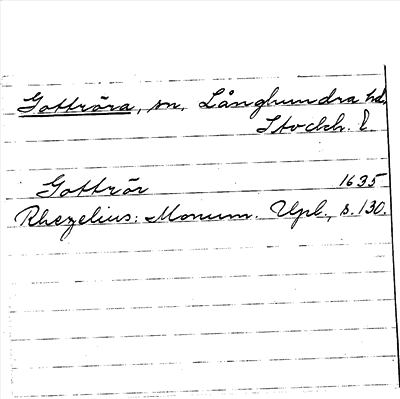 Gottröra, sn, Långhundra hd,
Stockh. l.
Gottrör 1635
Rhezelius: Monum. Upl., s. 130.